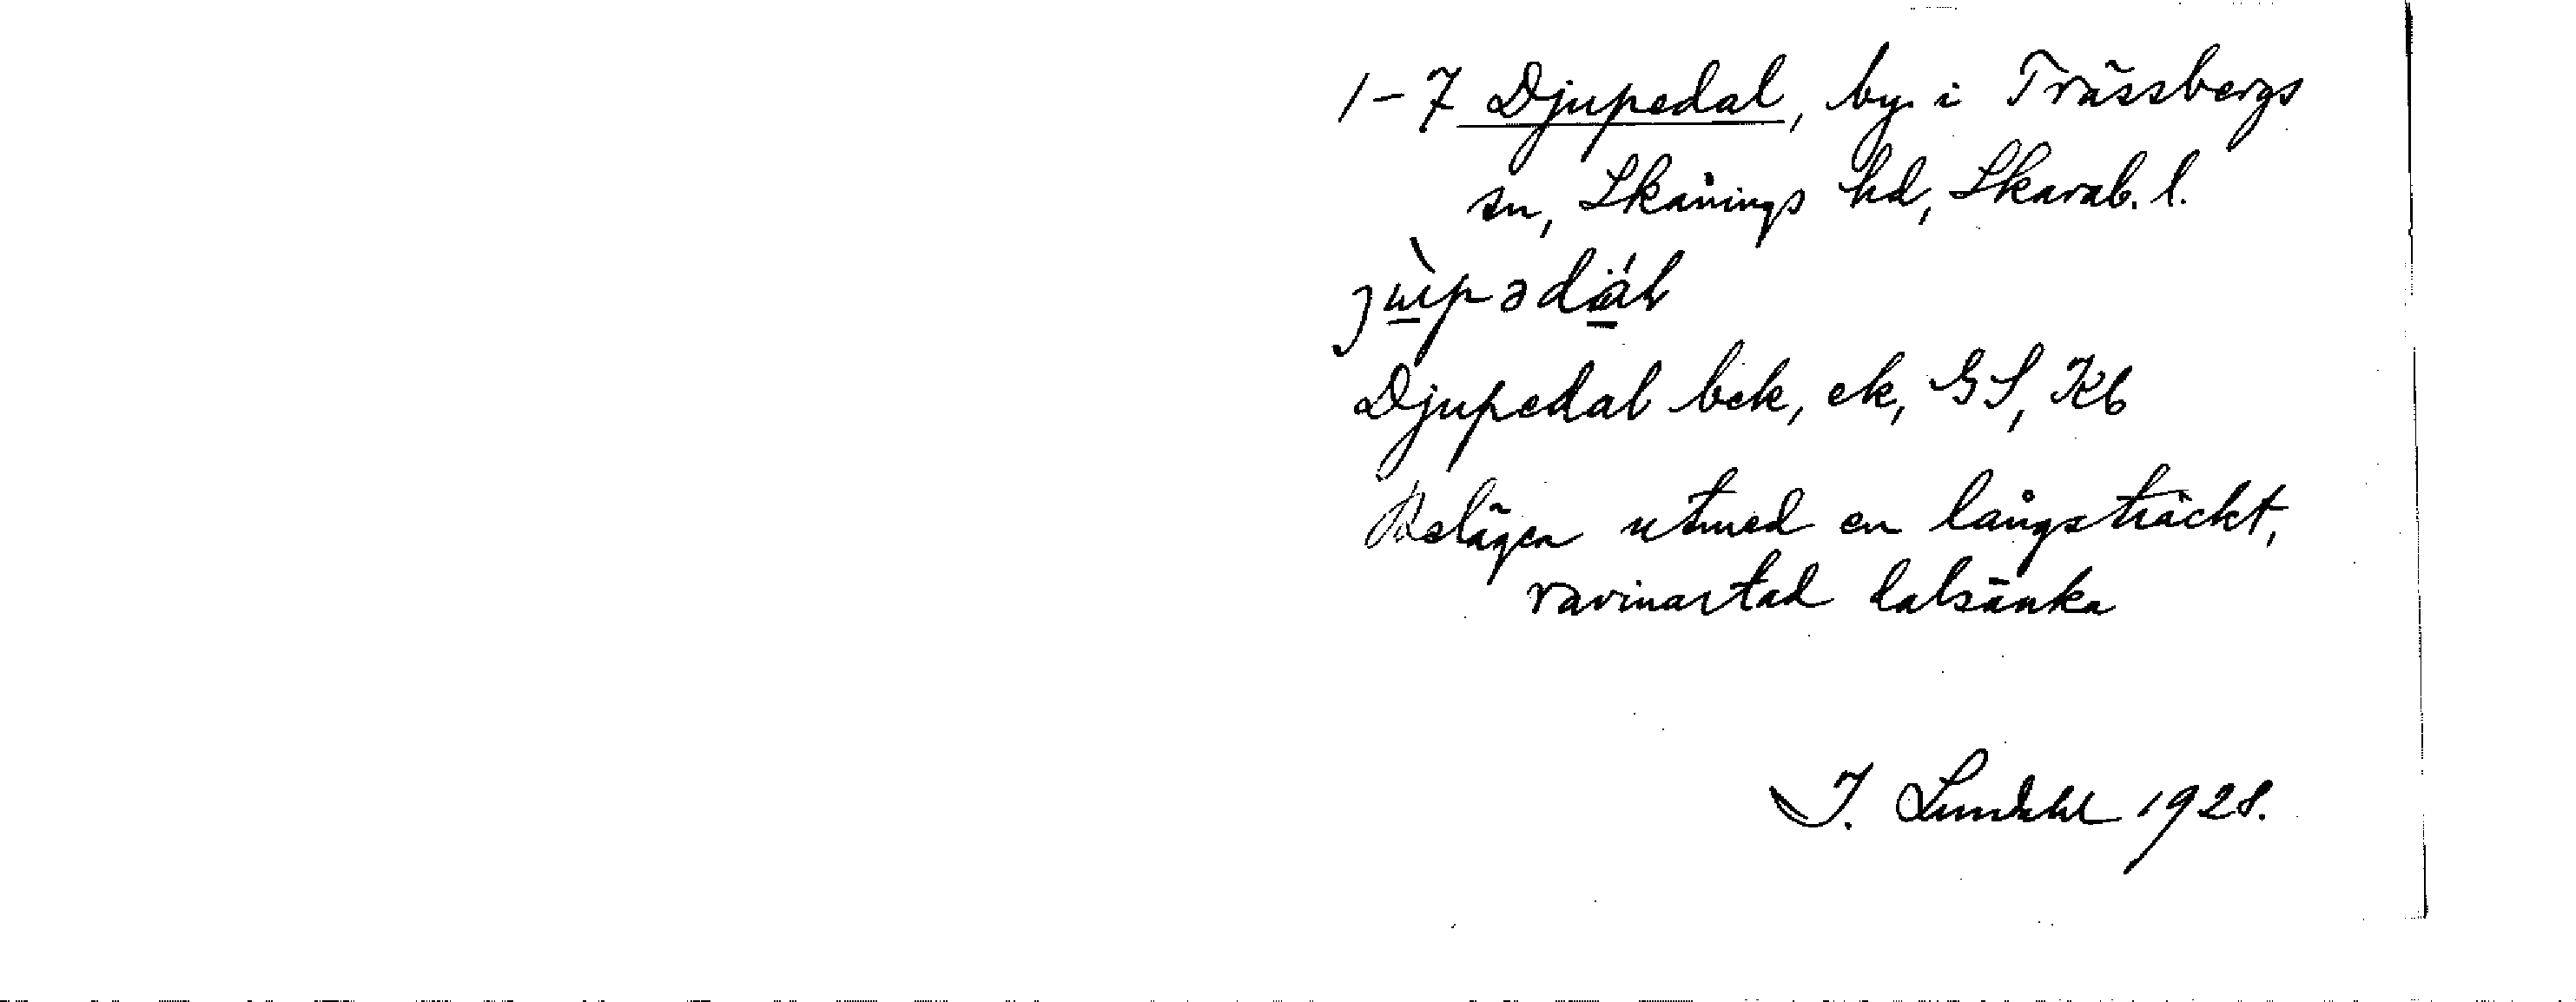 1-7 Djupedal, by i Trässbergs
sn, Skånings hd, Skarab. l.
jùpədä́l
Djupedal bek, ek, GS, Kb
Belägen utmed en långsträckt,
ravinartad dalsänka
I. Lundahl 1928.